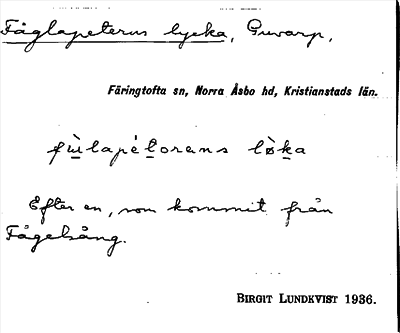 Fåglapeterns lycka, Guvarp,
Färingtofta sn, Norra Åsbo hd, Kristianstads län.
fùlapétorəns lø̀ka
Efter en, som kommit från
Fågelsång.
BIRGIT LUNDKVIST 1936.